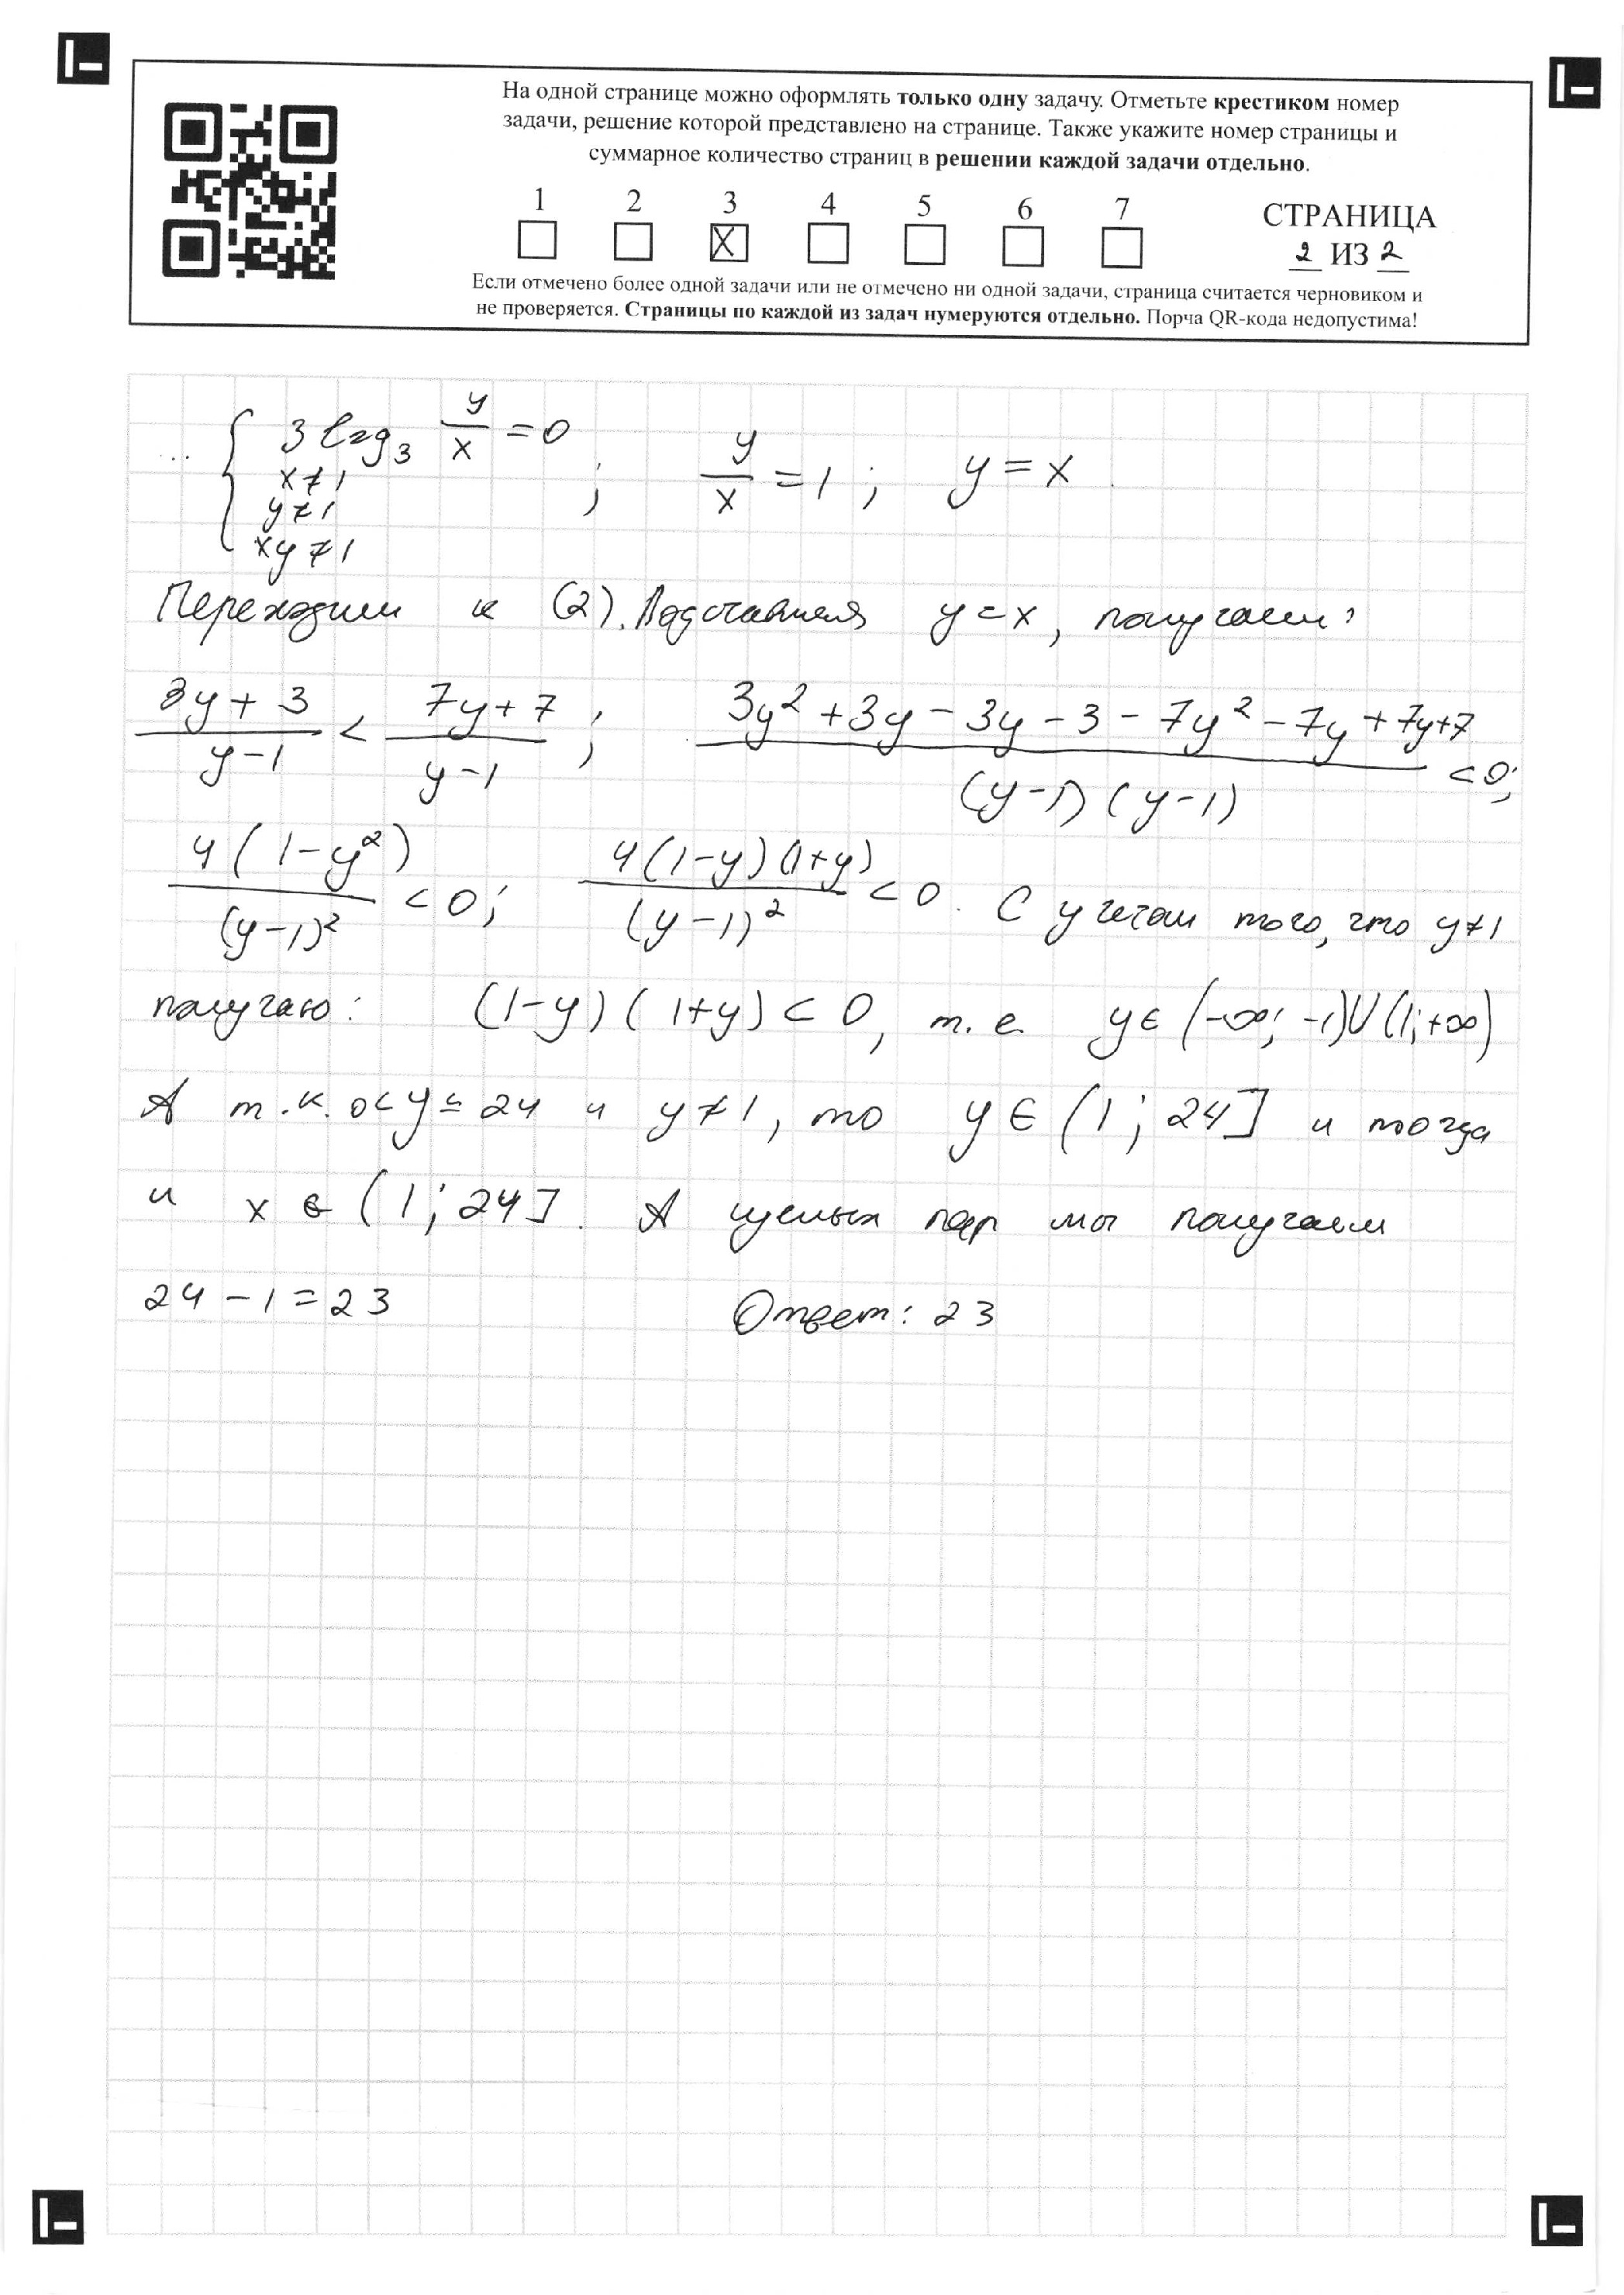 На одной странице можно оформлять только одну задачу. Отметьте крестиком номер
задачи, решение которой представлено на странице. Также укажите номер страницы и
суммарное количество страниц в решении каждой задачи отдельно.
1 2 3 4 5 6 7
X
СТРАНИЦА
2 ИЗ 2
Если отмечено более одной задачи или не отмечено ни одной задачи, страница считается черновиком и
не проверяется. Страницы по каждой из задач нумеруются отдельно. Порча QR-кода недопустима!
... { 3 log₃ y/x = 0 ; y/x = 1 ; y = x
x ≠ 1
y ≠ 1
xy ≠ 1
Переходим к (2). Подставляя y = x, получаем:
(3y + 3)/(y - 1) < (7y + 7)/(y - 1) ; (3y² + 3y - 3y - 3 - 7y² - 7y + 7y + 7)/((y - 1)(y - 1)) < 0;
4(1 - y²)/(y - 1)² < 0; 4(1 - y)(1 + y)/(y - 1)² < 0. С учетом того, что y ≠ 1
получаю: (1 - y)(1 + y) < 0, т.е. y ∈ (-∞; -1) U (1; +∞)
А т.к. 0 < y ≤ 24 и y ≠ 1, то y ∈ (1; 24] и тогда
и x ∈ (1; 24]. А целых пар мы получаем
24 - 1 = 23 Ответ: 23